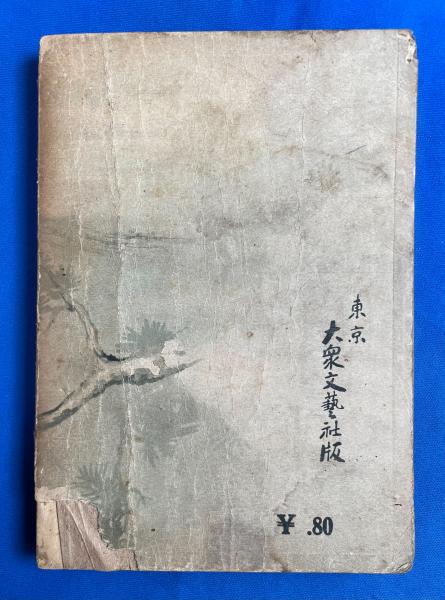 東京
大衆文藝社版
¥ .80